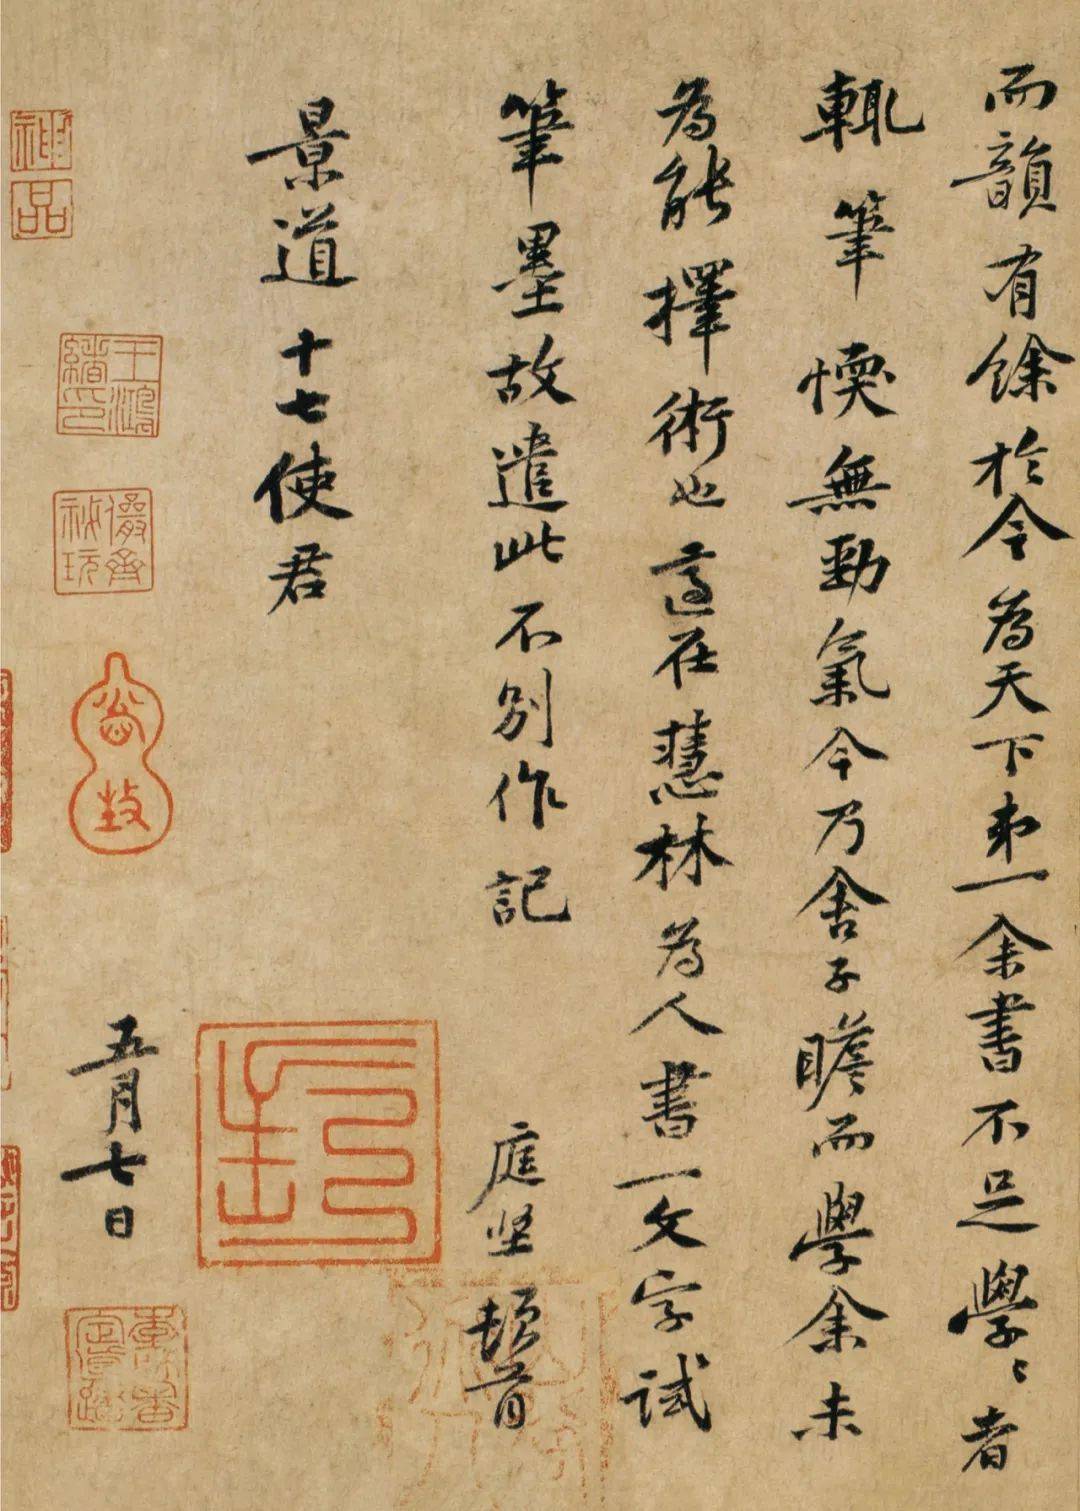 而韻有餘於今為天下第一余書不足學學者
輒筆愞無勁氣今乃舍子瞻而學余未
為能擇術也適在慧林為人書一文字試
筆墨故遣此不別作記 庭坚頓首
景道十七使君
五月七日
神品
王鴻緒印
儼齋秘玩